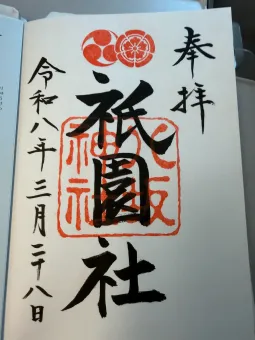 奉拝
祇園社
八坂神社
令和八年三月二十八日